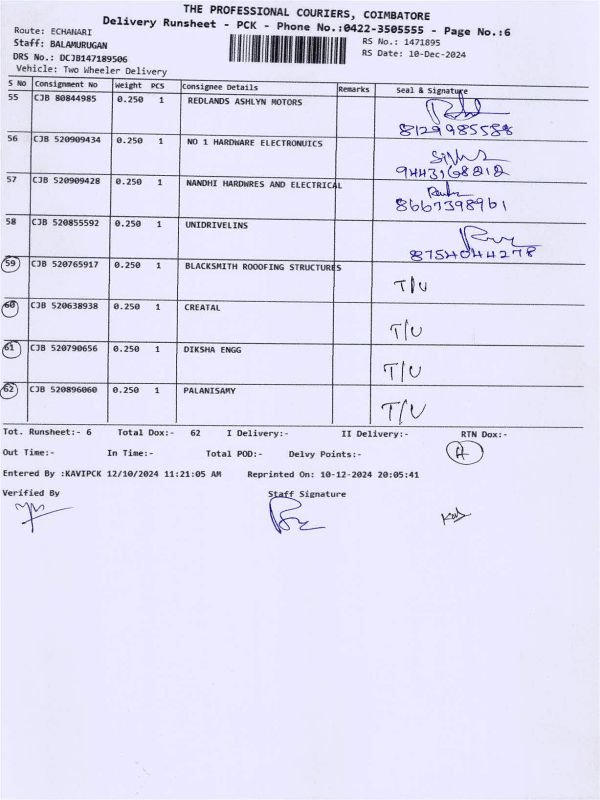 THE PROFESSIONAL COURIERS, COIMBATORE
Delivery Runsheet - PCK - Phone No.:0422-3505555 - Page No.:6
Route: ECHANARI
RS No.: 1471895
Staff: BALAMURUGAN
RS Date: 10-Dec-2024
DRS No.: DCJB147189506
Vehicle: Two Wheeler Delivery
S No Consignment No Weight PCS Consignee Details Remarks Seal & Signature
55 CJB 80844985 0.250 1 REDLANDS ASHLYN MOTORS
8129985588
56 CJB 520909434 0.250 1 NO 1 HARDWARE ELECTRONUICS
9443168212
57 CJB 520909428 0.250 1 NANDHI HARDWRES AND ELECTRICAL
8667398961
58 CJB 520855592 0.250 1 UNIDRIVELINS
8754044278
59 CJB 520765917 0.250 1 BLACKSMITH ROOOFING STRUCTURES
T/U
60 CJB 520638938 0.250 1 CREATAL
T/U
61 CJB 520790656 0.250 1 DIKSHA ENGG
T/U
62 CJB 520896060 0.250 1 PALANISAMY
T/U
Tot. Runsheet:- 6 Total Dox:- 62 I Delivery:- II Delivery:- RTN Dox:-
Out Time:- In Time:- Total POD:- Delvy Points:-
Entered By :KAVIPCK 12/10/2024 11:21:05 AM Reprinted On: 10-12-2024 20:05:41
Verified By Staff Signature